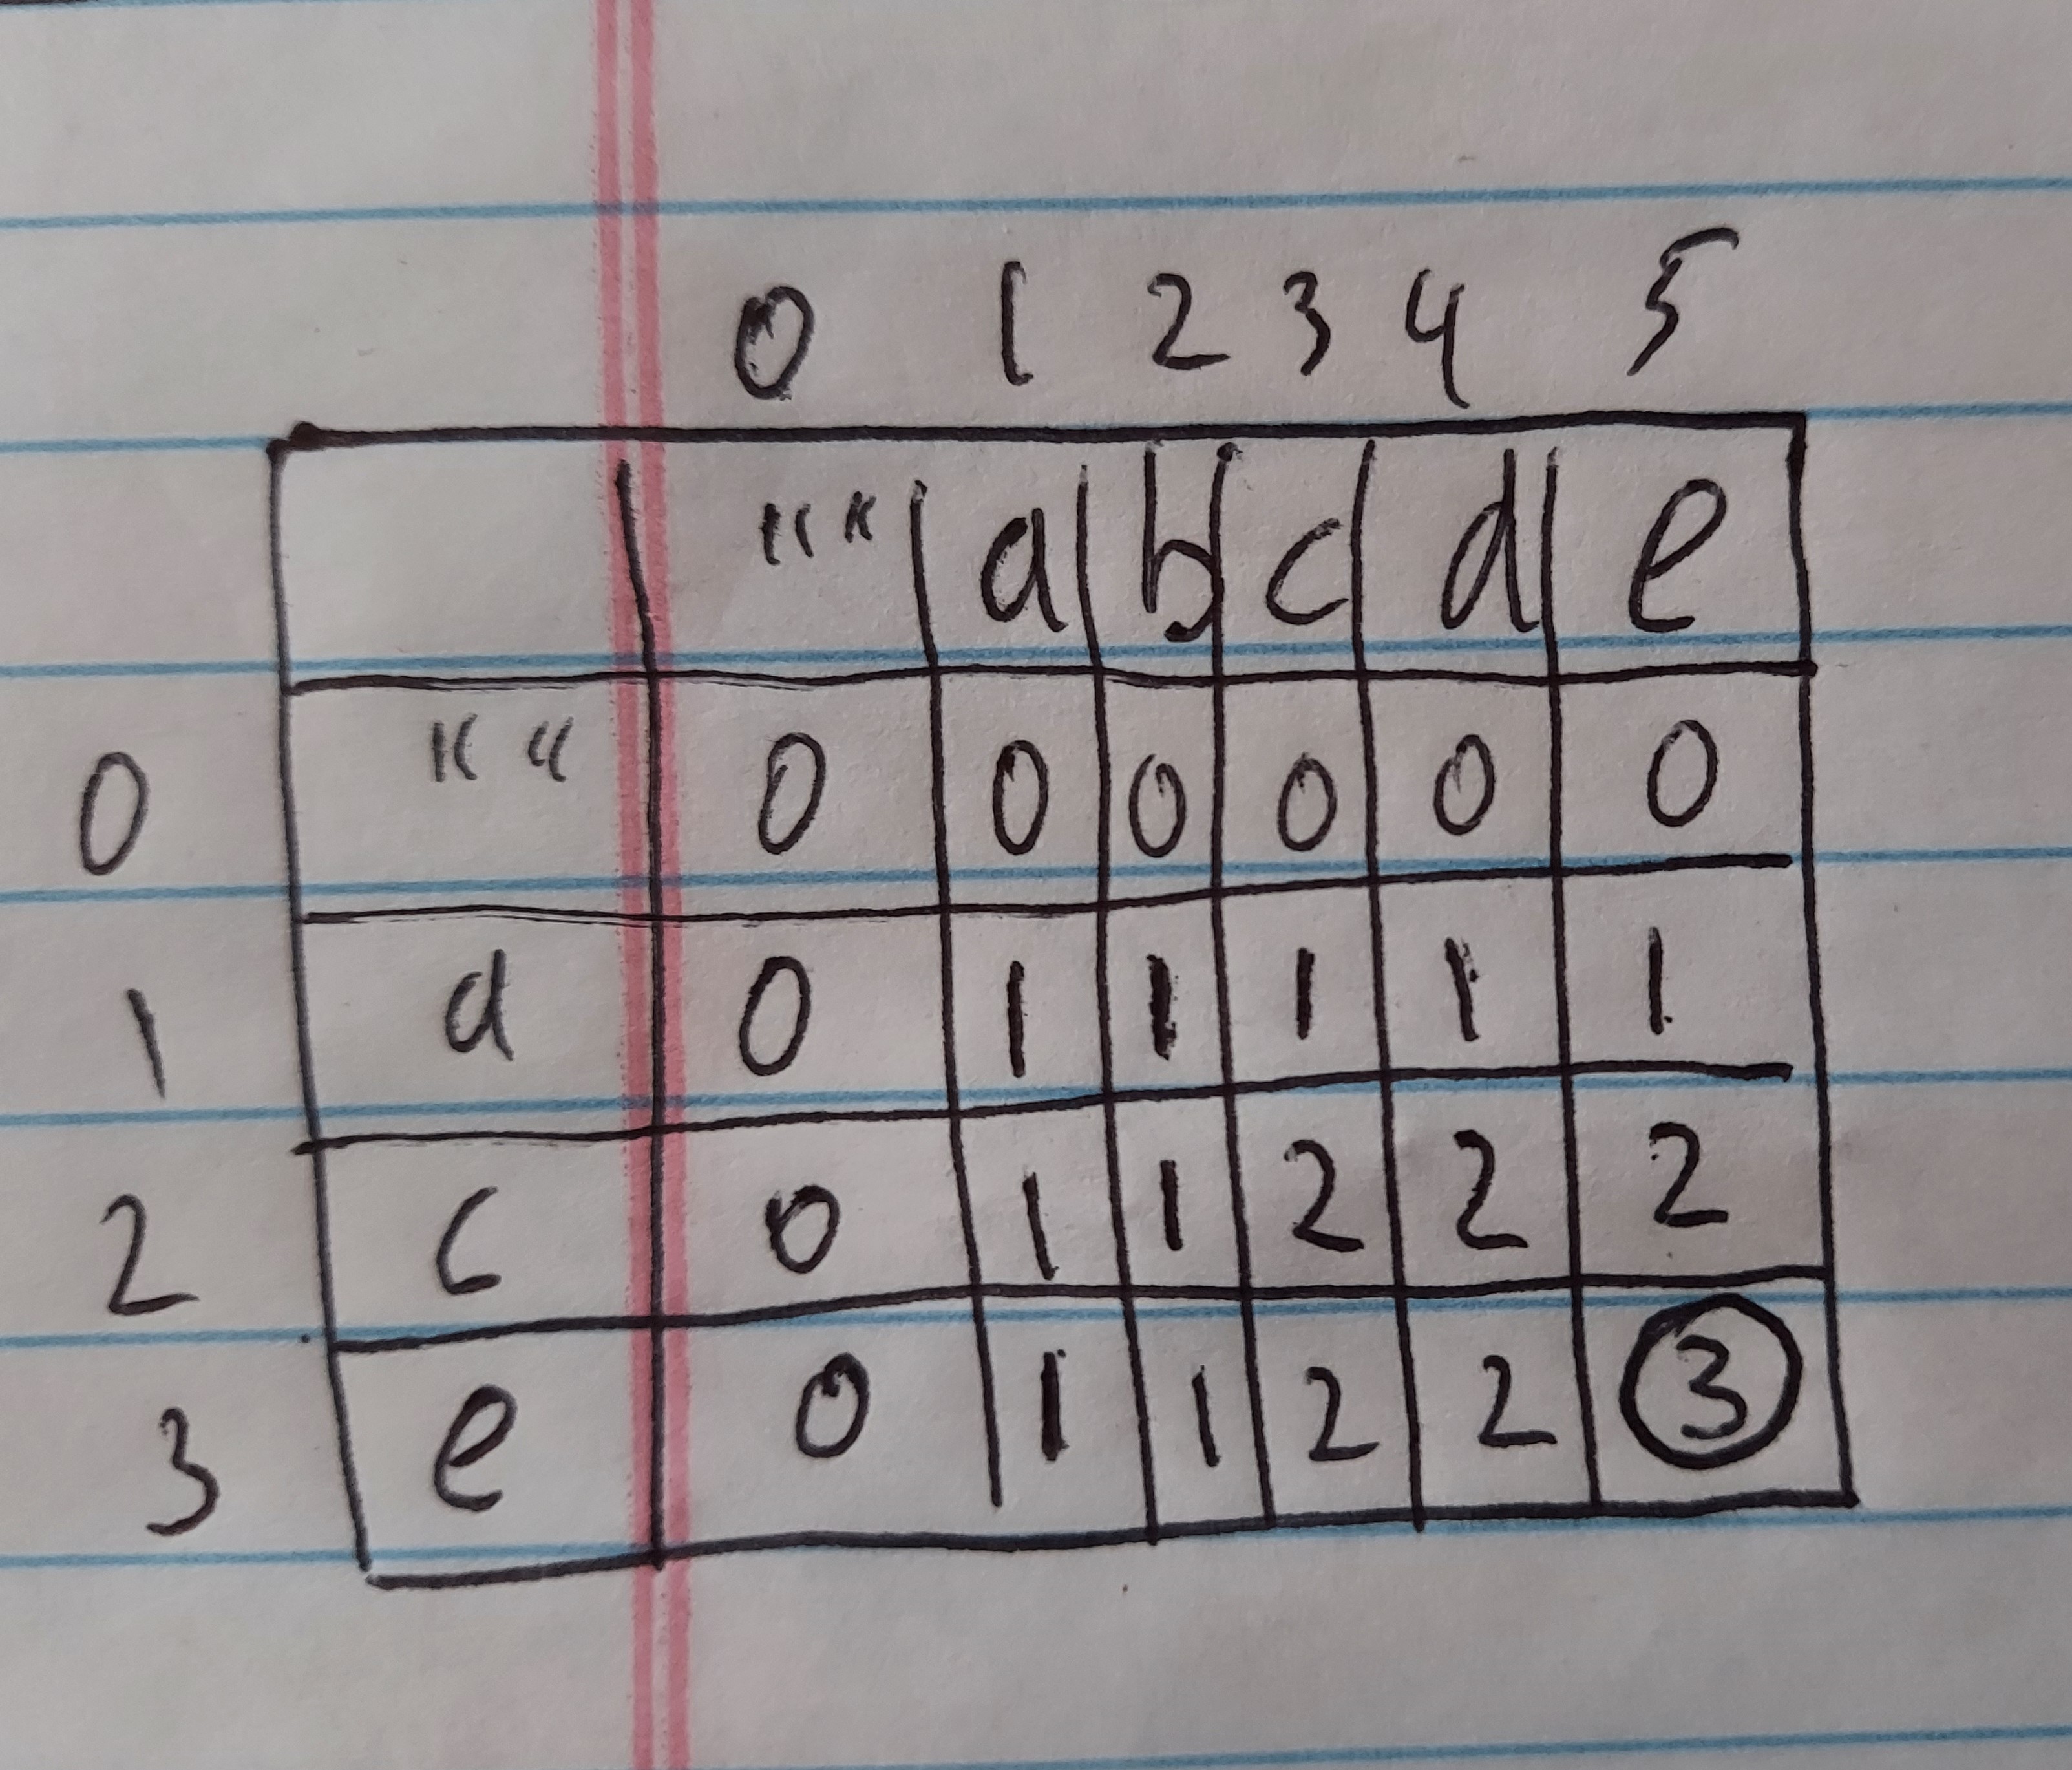 0 1 2 3 4 5
"" a b c d e
0 "" 0 0 0 0 0 0
1 a 0 1 1 1 1 1
2 c 0 1 1 2 2 2
3 e 0 1 1 2 2 3